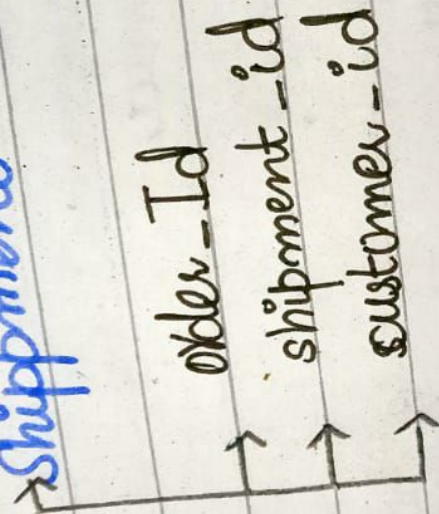 Shippments
order_Id
shipment_id
customer_id